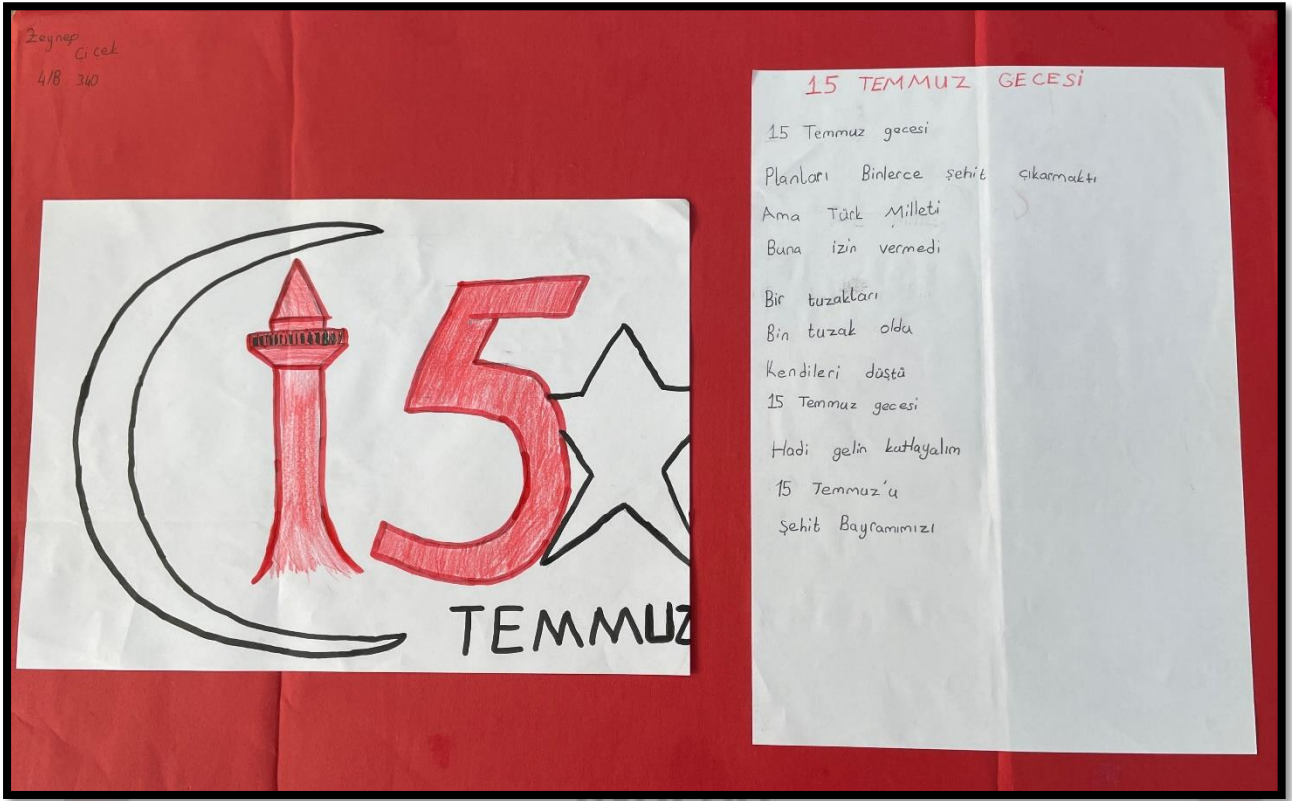 Zeynep
Çiçek
4/B 340
15
TEMMUZ
15 TEMMUZ GECESİ
15 Temmuz gecesi
Planları Binlerce şehit çıkarmaktı
Ama Türk Milleti
Buna izin vermedi
Bir tuzakları
Bin tuzak oldu
Kendileri düştü
15 Temmuz gecesi
Hadi gelin kutlayalım
15 Temmuz'u
Şehit Bayramımızı